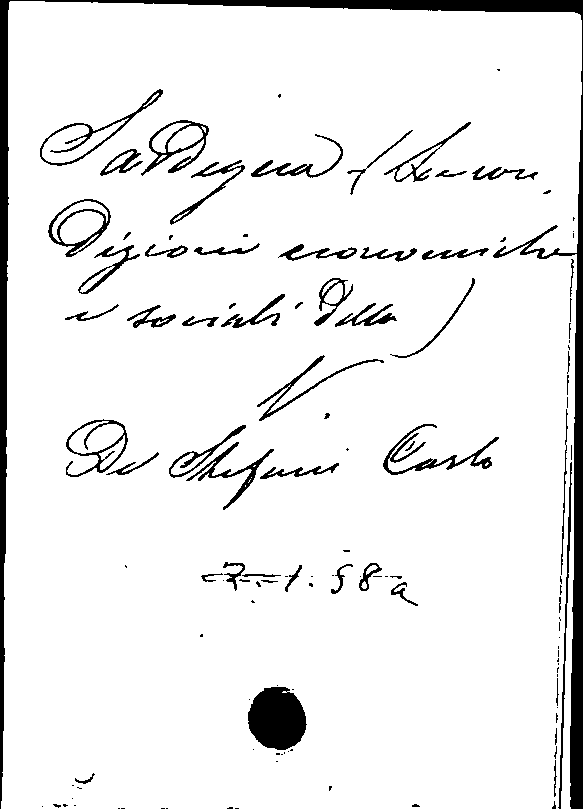 Sardegna (Le con
dizioni economiche
e sociali della)
V.
De Stefani Carlo
7.1.58a